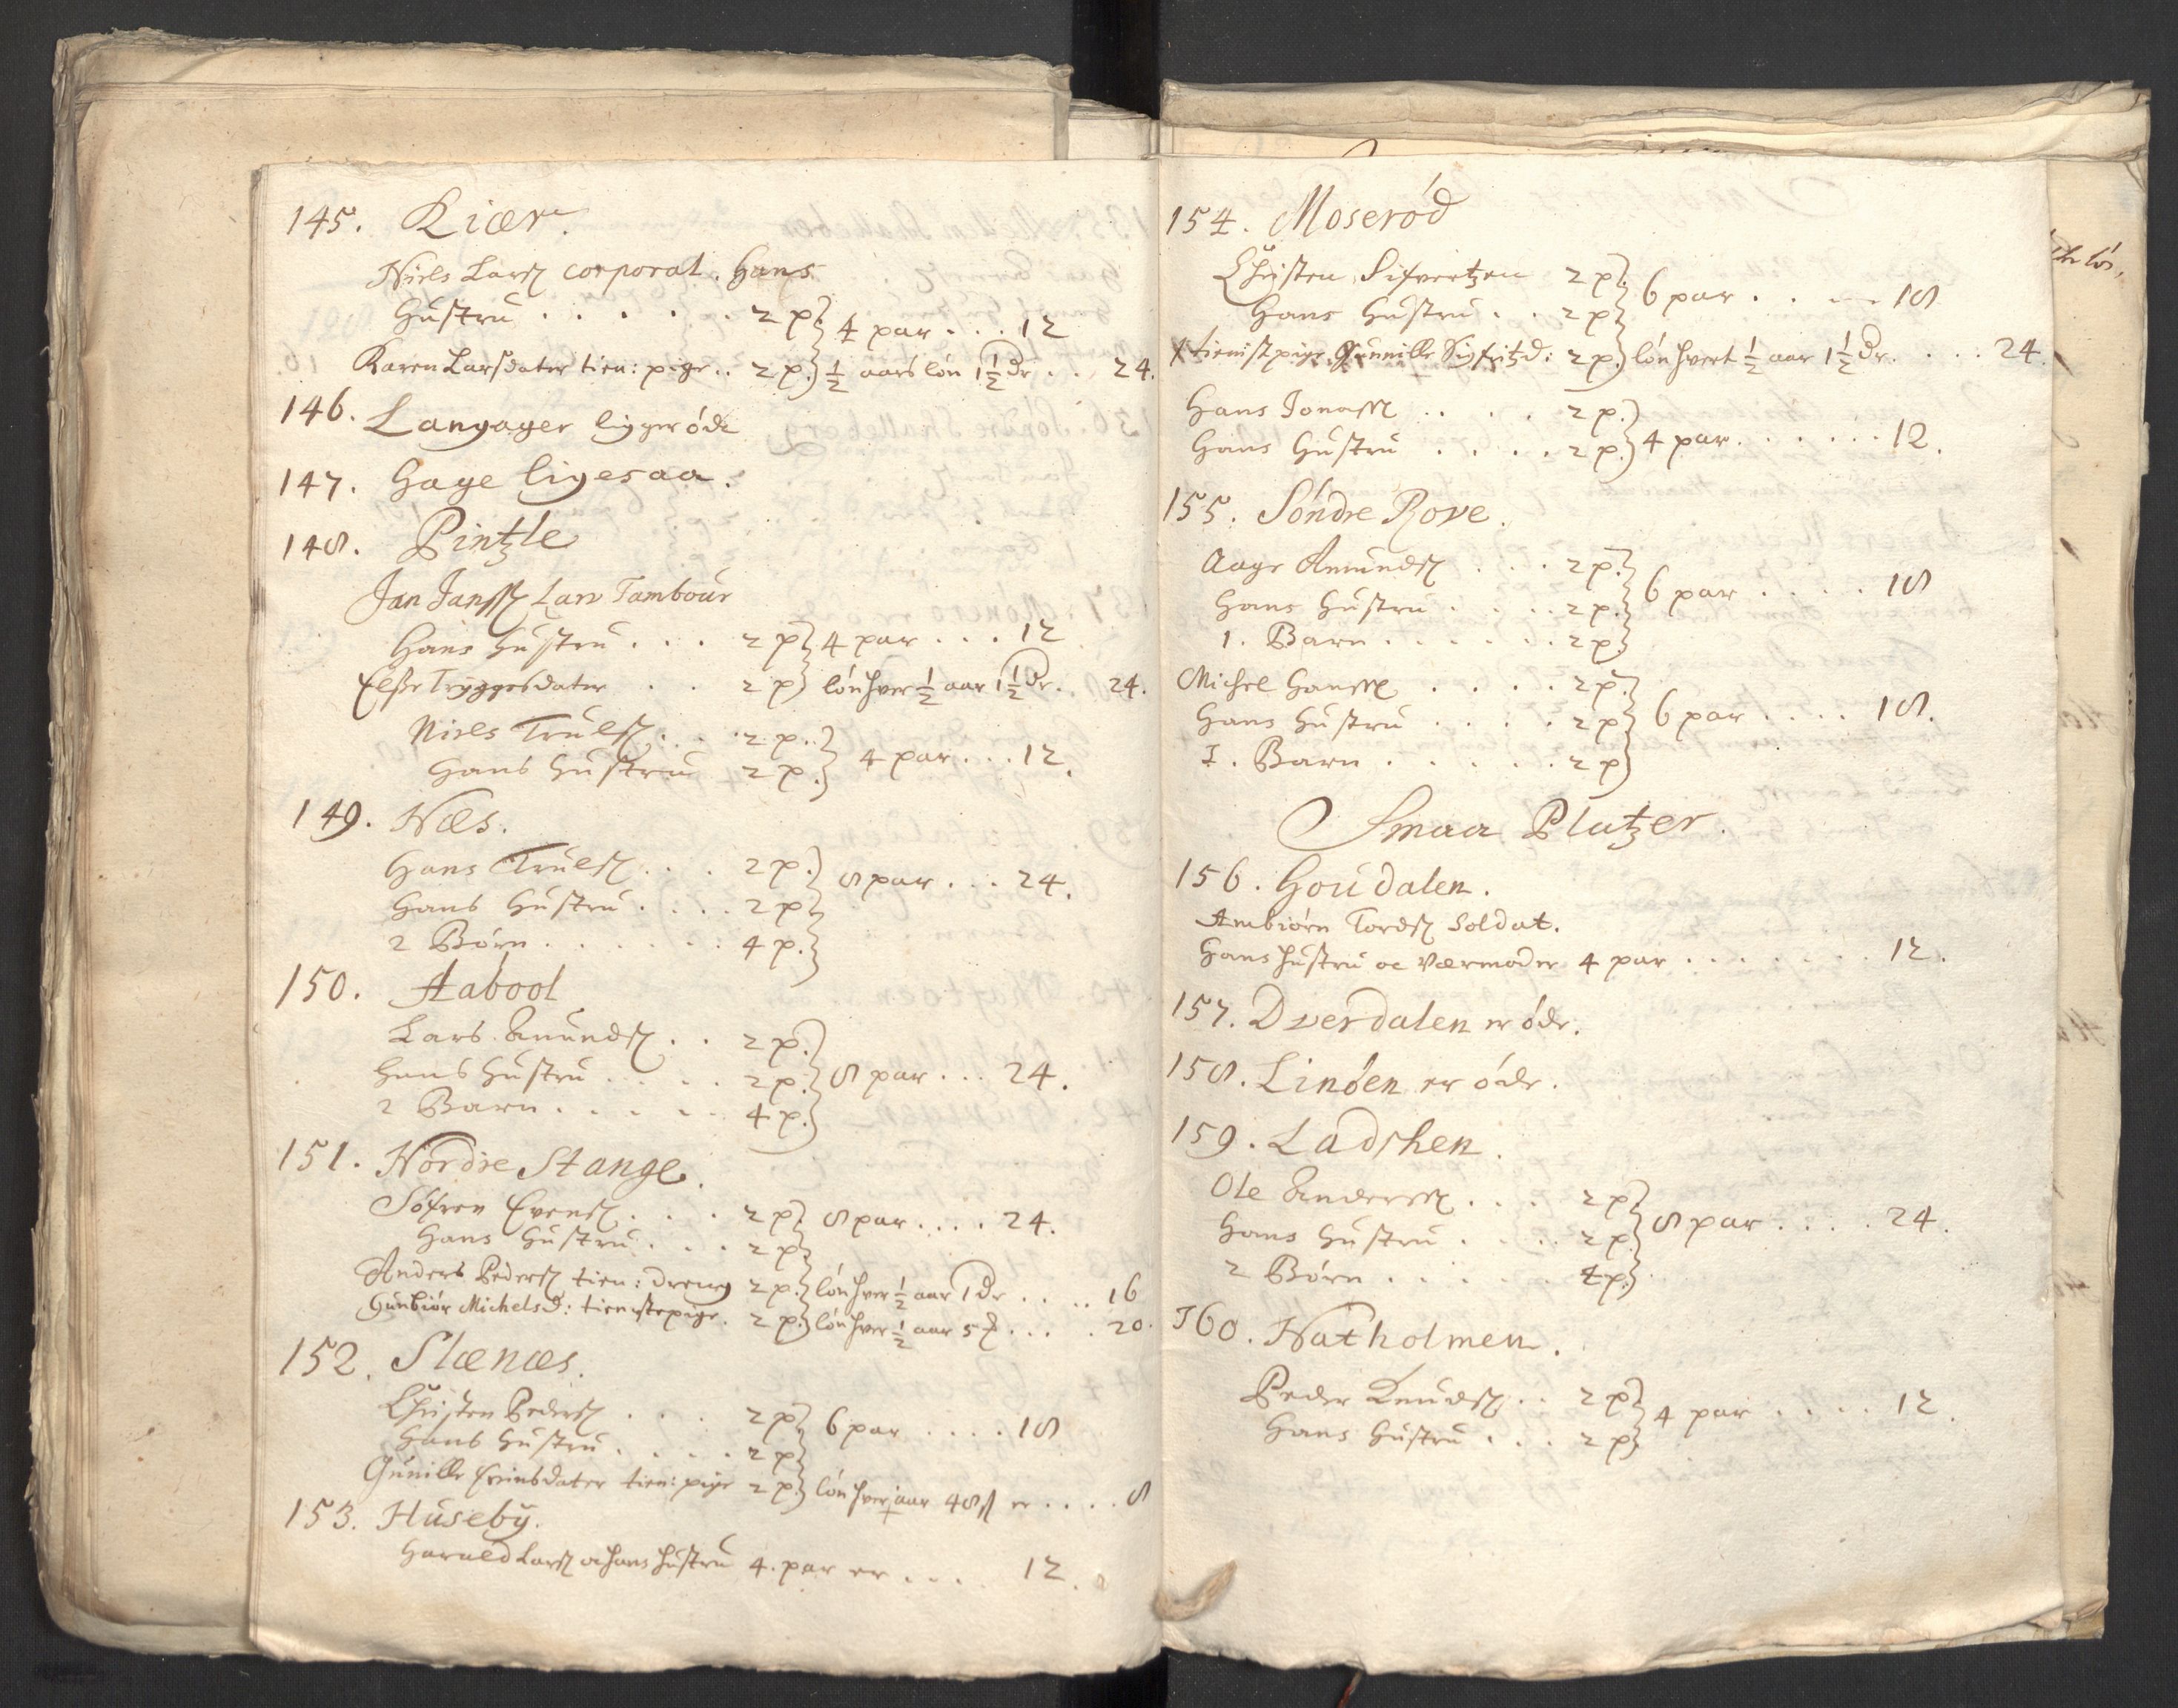 145. Kiær.
Niels Larsz corporal. Hans
Hustru . . . . . . 2 p. 4 par . . . 12
Karen Larsdater tien: pige . . 2 p. ½ aars løn 1½ dr . . 24.
146. Langager ligger óde
147. Hage ligesaa.
148. Pintzle
Jan Jansz Tambour
Hans Hustru . . . 2 p 4 par . . . 12
Elsze Tryggesdater . . 2 p lón hver ½ aar 1½ dr. . 24.
Niels Trulsz . . . 2 p. . 4 par . . . 12.
Hans Hustru 2 p.
149. Næs.
Hans Trulsz . . . 2 p. 8 par . . . 24.
Hans Hustru . . . . 2 p
2 Børn . . . . . . 4 p.
150. Aabool
Lars Anundsz . . 2 p.
Hans Hustru . . . . 2 p. 8 par . . . 24.
2 Barn . . . . . 4 p.
151. Nordre Stange.
Söfren Evensz . . . 2 p. 8 par . . . . 24.
Hans Hustru . . . 2 p
Anders Pedersz tien: dreng 2 p. lón hver ½ aar 1 dr . . . . 16
Gunbiör Michelsd: tienistepige. 2 p. lón hver ½ aar 5 . . . . 20.
152. Slænæs.
Christen Pedersz . . . 2 p 6 par . . . . 18
Hans Hustru . . . . 2 p
Gunille dater tien: pige 2 p. lón hver aar 48 ß er . . . . 8
153. Huseby.
Harald Larsz oc hans Hustru 4. par er . . . . 12.
154. Moseród
Christen Sifvertzen 2 p. 6 par . . . 18
Hans Hustru . . 2 p
tienist pige Gunnille Sigfritzd: 2 p. lón hvert ½ aar 1½ dr. . . . 24.
Hans Jonassz . . . . 2 p.
Hans Hustru . . . . 2 p. 4 par . . . . . . 12.
155. Söndre Rove.
Aage Amundsz . . . 2 p.
Hans Hustru . . . . 2 p. 6 par . . . . 18
1. Barn . . . . . . 2 p
Michel Hanssz . . . . 2 p.
Hans Hustru . . . . 2 p 6 par . . . . 18.
1. Barn . . . . . . 2 p
Smaa Platzer.
156. Goudalen.
Ambiörn Tordsz Soldat.
Hans Hustru oc Værmoder 4 par . . . . . . . 12.
157. Dverdalen er óde.
158. Linóen er óde.
159. Ladshen.
Ole Anderssz . . . 2 p
Hans Hustru . . . . 2 p. 8 par . . . . 24.
2 Börn . . . . . 4 p.
160. Natholmen.
Peder Knudsz . . 2 p 4 par . . . . 12.
Hans Hustru . . . 2 p